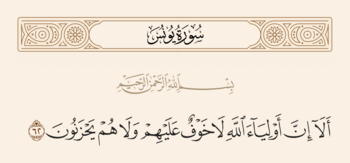 سُورَةُ يُونُسَ
بِسْمِ اللَّهِ الرَّحْمَٰنِ الرَّحِيمِ
أَلَآ إِنَّ أَوْلِيَآءَ ٱللَّهِ لَا خَوْفٌ عَلَيْهِمْ وَلَا هُمْ يَحْزَنُونَ ٦٢